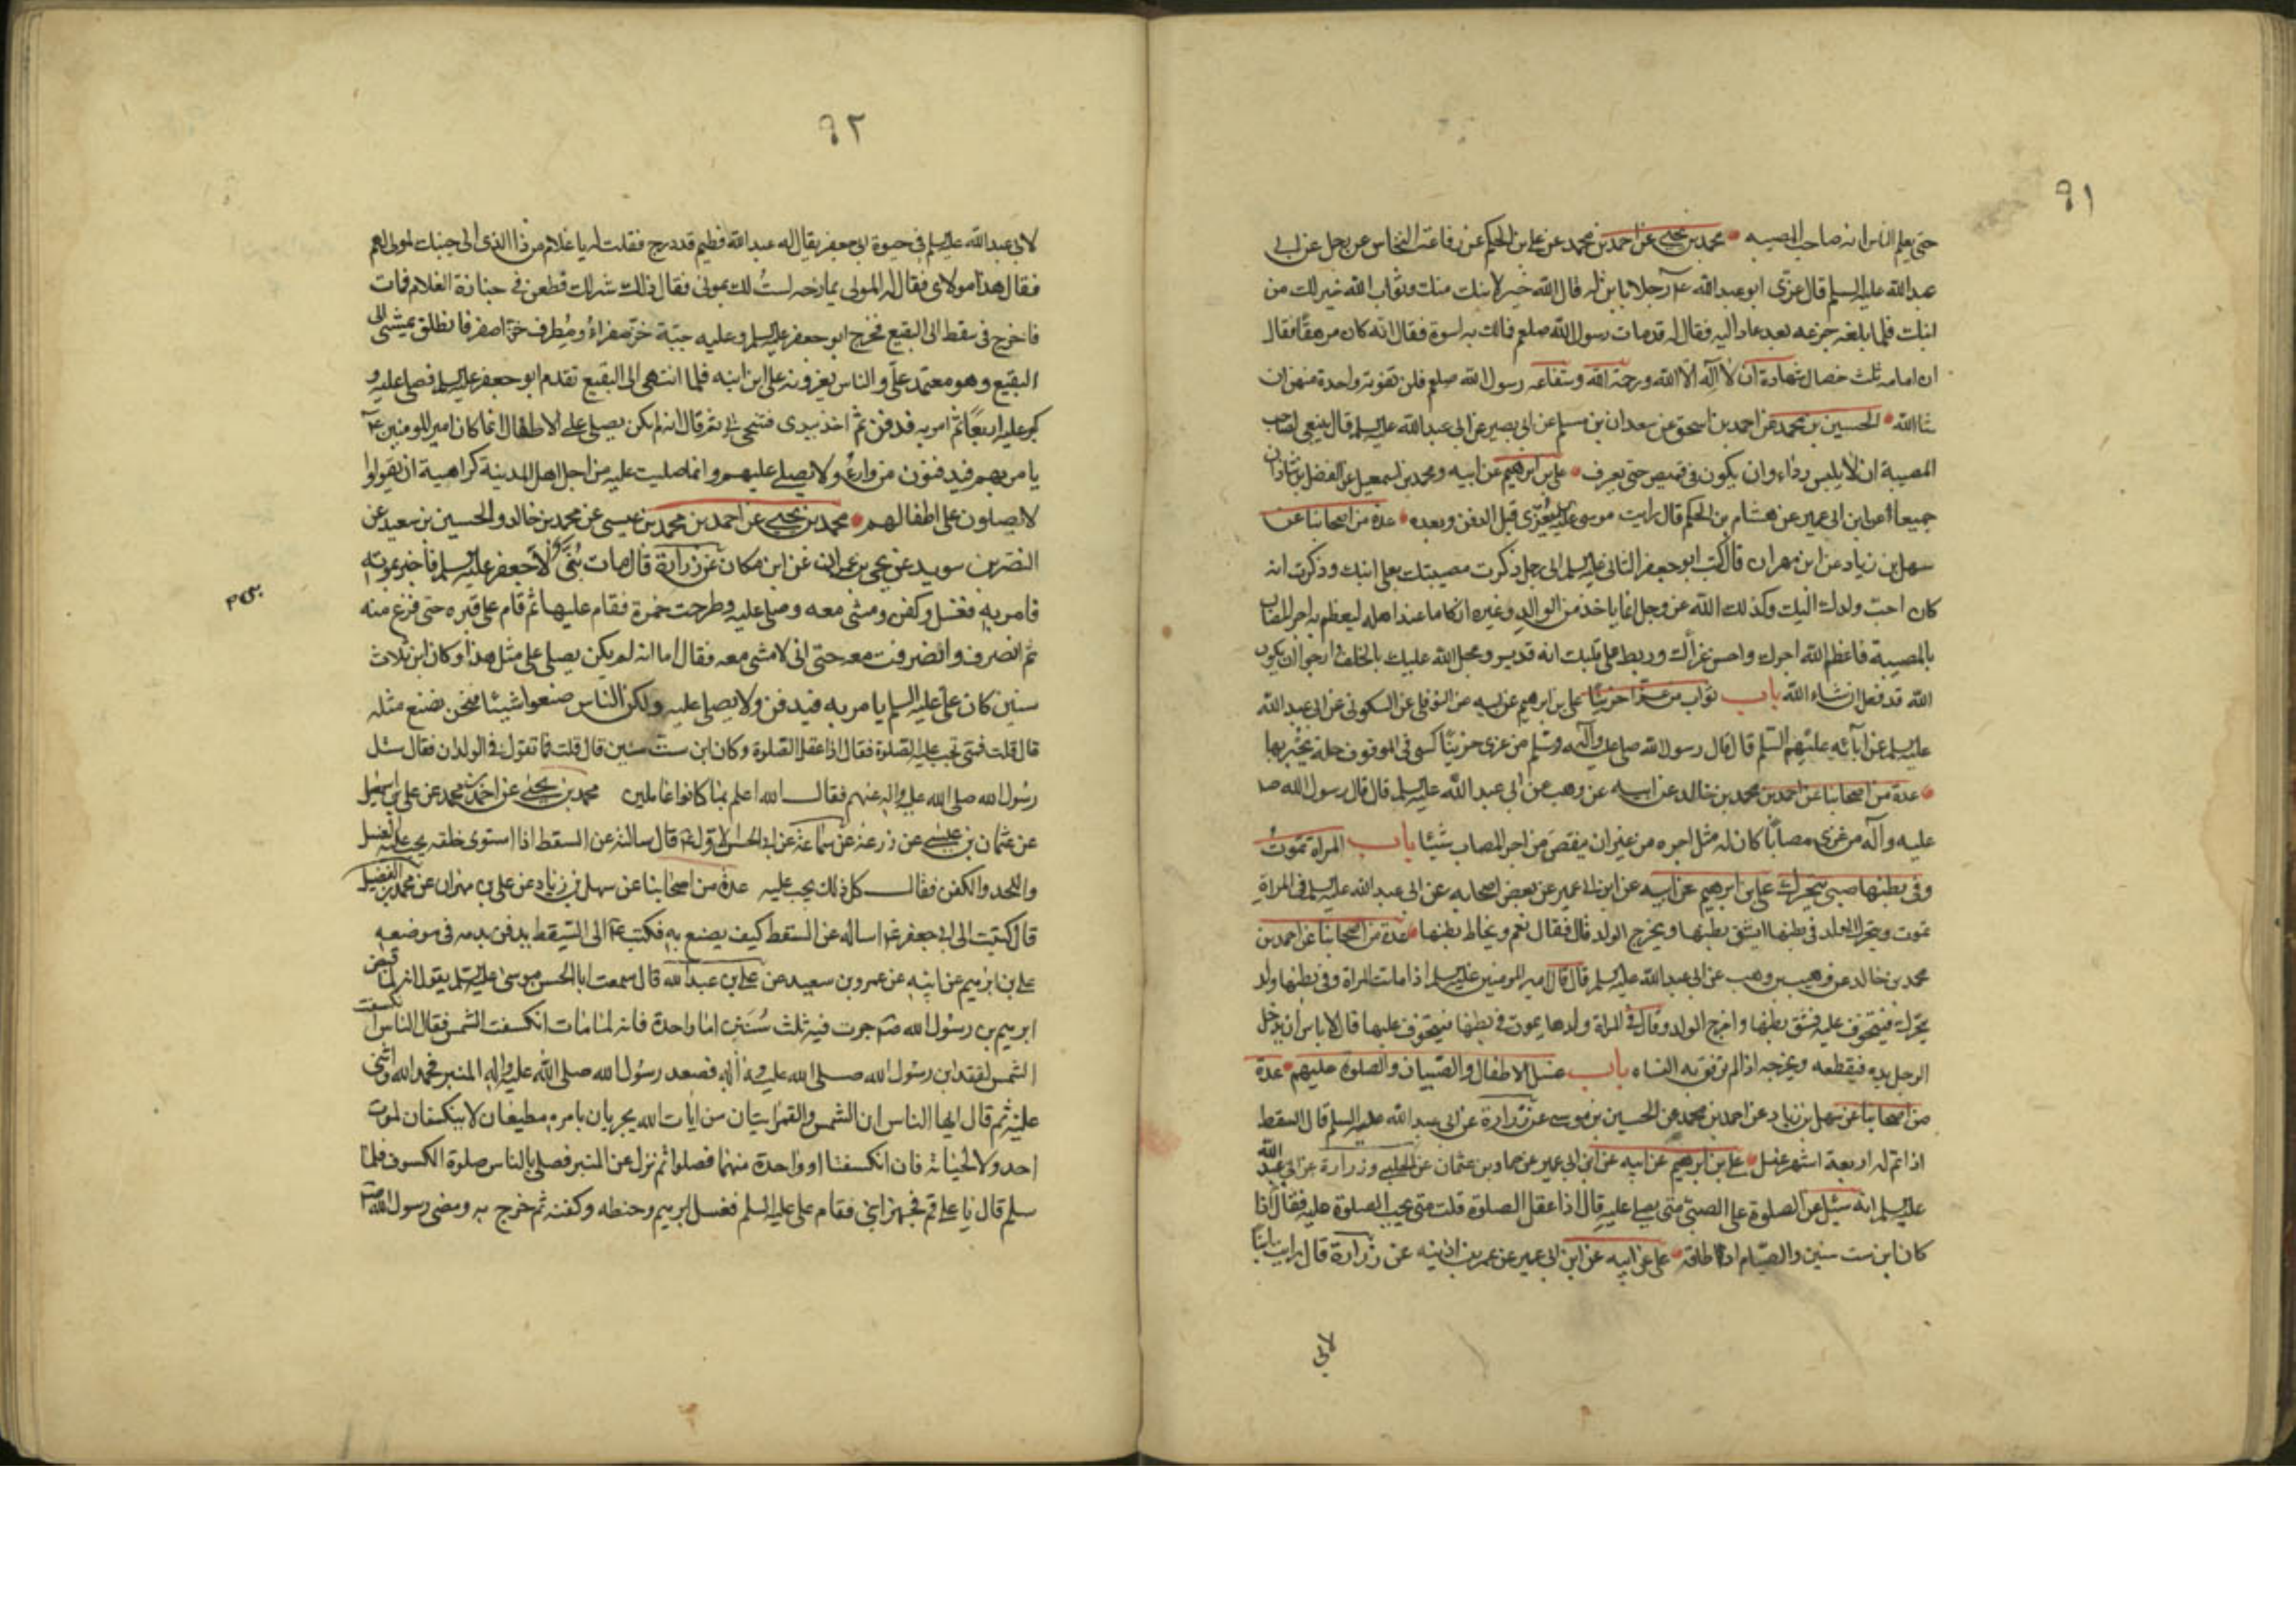 ٩١
حتى يعلم الناس انه صاحب المصيبه محمد بن يحيى عن احمد بن محمد عن علي بن الحكم عن رفاعة النخاس عن رجل عن ابي
عبد الله عليه السلم قال عزى ابو عبد الله ع رجلا بابن له فقال الله خير لابنك منك وثواب الله خير لك من
ابنك فلما بلغه جزعه بعد عاد اليه فقال له قد مات رسول الله صلعم فمالك به اسوة فقال انه كان مرهقا فقال
ان امامه ثلث خصال شهادة ان لا اله الا الله ورحمة الله وشفاعه رسول الله صلعم فلن تفوته واحدة منهن ان
شا الله الحسين بن محمد عن احمد بن اسحق عن سعدان بن مسلم عن ابي بصير عن ابي عبد الله عليه السلم قال ينبغي لصاحب
المصيبة ان لا يلبس رداء وان يكون في قميص حتى يعرف علي بن ابرهيم عن ابيه ومحمد بن اسمعيل عن الفضل بن شاذان
جميعا عن ابن ابي عمير عن هشام بن الحكم قال رايت موسى عليه السلم يعزى قبل الدفن وبعده عدة من اصحابنا عن
سهل بن زياد عن ابن مهران قال كتب ابو جعفر الثاني عليه السلم الى رجل ذكرت مصيبتك بعلي ابنك وذكرت انه
كان احب ولدك اليك وكذلك الله عز وجل انما ياخذ من الوالد وغيره ازكا ما عند اهله ليعظم به اجر المصاب
بالمصيبة فاعظم الله اجرك واحسن عزاك وربط على قلبك انه قدير وعجل الله عليك بالخلف وارجو ان يكون
الله قد فعل ان شاء الله باب ثواب من عزا حزينا علي بن ابرهيم عن ابيه عن النوفلي عن السكوني عن ابي عبد الله
عليه السلم عن آبائه عليهم السلم قال قال رسول الله صلى الله عليه وآله وسلم من عزى حزينا كسى في الموقف حلة يحبر بها
عدة من اصحابنا عن احمد بن محمد بن خالد عن ابيه عن وهب عن ابي عبد الله عليه السلم قال قال رسول الله ص
عليه وآله من عزى مصابا كان له مثل اجره من غير ان ينقص من اجر المصاب شيئا باب المراة تموت
وفي بطنها صبي يتحرك علي بن ابرهيم عن ابيه عن ابن ابي عمير عن بعض اصحابه عن ابي عبد الله عليه السلم في المراة
تموت ويتحرك الولد في بطنها ايشق بطنها ويخرج الولد قال فقال نعم ويخاط بطنها عدة من اصحابنا عن احمد بن
محمد بن خالد عن وهب بن وهب عن ابي عبد الله عليه السلم قال قال امير المومنين عليه السلم اذا ماتت المراة وفي بطنها ولد
يتحرك فيتخوف عليه فشق بطنها واخرج الولد وقال في المراة ولدها يموت في بطنها فيتخوف عليها قال لا باس ان يدخل
الرجل يده فيقطعه ويخرجه اذا لم ترفق به النساء باب غسل الاطفال والصبيان والصلوة عليهم عدة
من اصحابنا عن سهل بن زياد عن احمد بن محمد عن الحسين بن موسى عن زرارة عن ابي عبد الله عليه السلم قال السقط
اذا تم له اربعة اشهر غسل علي بن ابرهيم عن ابيه عن ابن ابي عمير عن حماد بن عثمان عن الحلبي وزرارة عن ابي عبد الله
عليه السلم انه سئل عن الصلوة على الصبي متى يصلي عليه قال اذا عقل الصلوة قلت متى يجب الصلوة عليه فقال اذا
كان ابن ست سنين والصيام اذا اطاقه علي عن ابيه عن ابن ابي عمير عن عمر بن اذينه عن زرارة قال رايت ابنا
لابي
٩٢
لابي عبد الله عليه السلم في حيوة ابي جعفر يقال له عبد الله فطيم قد درج فقلت له يا غلام من ذا الذي الى جنبك لمولى لهم
فقال هذا مولاي فقال له المولى يمازحه لست لك بمولى فقال ذلك شر لك فطعن في جنازة الغلام فمات
فاخرج في سفط الى البقيع فخرج ابو جعفر عليه السلم وعليه جبة خز صفراء ومطرف خز اصفر فانطلق يمشي الى
البقيع وهو معتمد علي والناس يعزونه على ابن ابنه فلما انتهى الى البقيع تقدم ابو جعفر عليه السلم فصلى عليه و
كبر عليه اربعا ثم امر به فدفن ثم اخذ بيدي فتنحى بي ثم قال انه لم يكن يصلي على الاطفال انما كان امير المومنين ع
يامر بهم فيدفنون من وراء ولا يصلي عليهم وانما صليت عليه من اجل اهل المدينة كراهية ان يقولوا
لا يصلون على اطفالهم محمد بن يحيى عن احمد بن محمد بن عيسى عن محمد بن خالد والحسين بن سعيد عن
النضر بن سويد عن يحيى بن عمران عن ابن مسكان عن زرارة قال مات بني لابي جعفر عليه السلم فاخبر بموته
فامر به فغسل وكفن ومشى معه وصلى عليه وطرحت خمرة فقام عليها ثم قام على قبره حتى فرغ منه
ثم انصرف وانصرفت معه حتى اني لامشي معه فقال اما انه لم يكن يصلي على مثل هذا وكان ابن ثلاث
سنين كان علي عليه السلم يامر به فيدفن ولا يصلي عليه ولكن الناس صنعوا شيئا فنحن نصنع مثله
قال قلت فمتى تجب عليه الصلوة فقال اذا عقل الصلوة وكان ابن ست سنين قال قلت فما تقول في الولدان فقال سئل
رسول الله صلى الله عليه واله عنهم فقال الله اعلم بما كانوا عاملين محمد بن يحيى عن احمد بن محمد عن علي بن اسمعيل
عن عثمان بن عيسى عن زرعة عن سماعة عن ابي الحسن الاول ع قال سالته عن السقط اذا استوى خلقه يجب عليه الغسل
واللحد والكفن فقال كل ذلك يجب عليه عدة من اصحابنا عن سهل بن زياد عن علي بن مهزيار عن محمد بن الفضيل
قال كتبت الى ابي جعفر ع اساله عن السقط كيف يصنع به فكتب ع الى السقط يدفن بدمه في موضعه
علي بن ابرهيم عن ابيه عن عمرو بن سعيد عن علي بن عبد الله قال سمعت ابا الحسن موسى عليه السلم يقول انه لما قبض
ابرهيم بن رسول الله ص جرت فيه ثلث سنن اما واحدة فانه لما مات انكسفت الشمس فقال الناس انكسفت
الشمس لفقد ابن رسول الله صلى الله عليه وآله فصعد رسول الله صلى الله عليه واله المنبر فحمد الله واثنى
عليه ثم قال ايها الناس ان الشمس والقمر ايتان من ايات الله يجريان بامره مطيعان لا ينكسفان لموت
احد ولا لحياته فان انكسفتا او واحدة منهما فصلوا ثم نزل عن المنبر فصلى بالناس صلوة الكسوف فلما
سلم قال يا علي قم فجهز ابني فقام علي عليه السلم فغسل ابرهيم وحنطه وكفنه ثم خرج به ومضى رسول الله ص